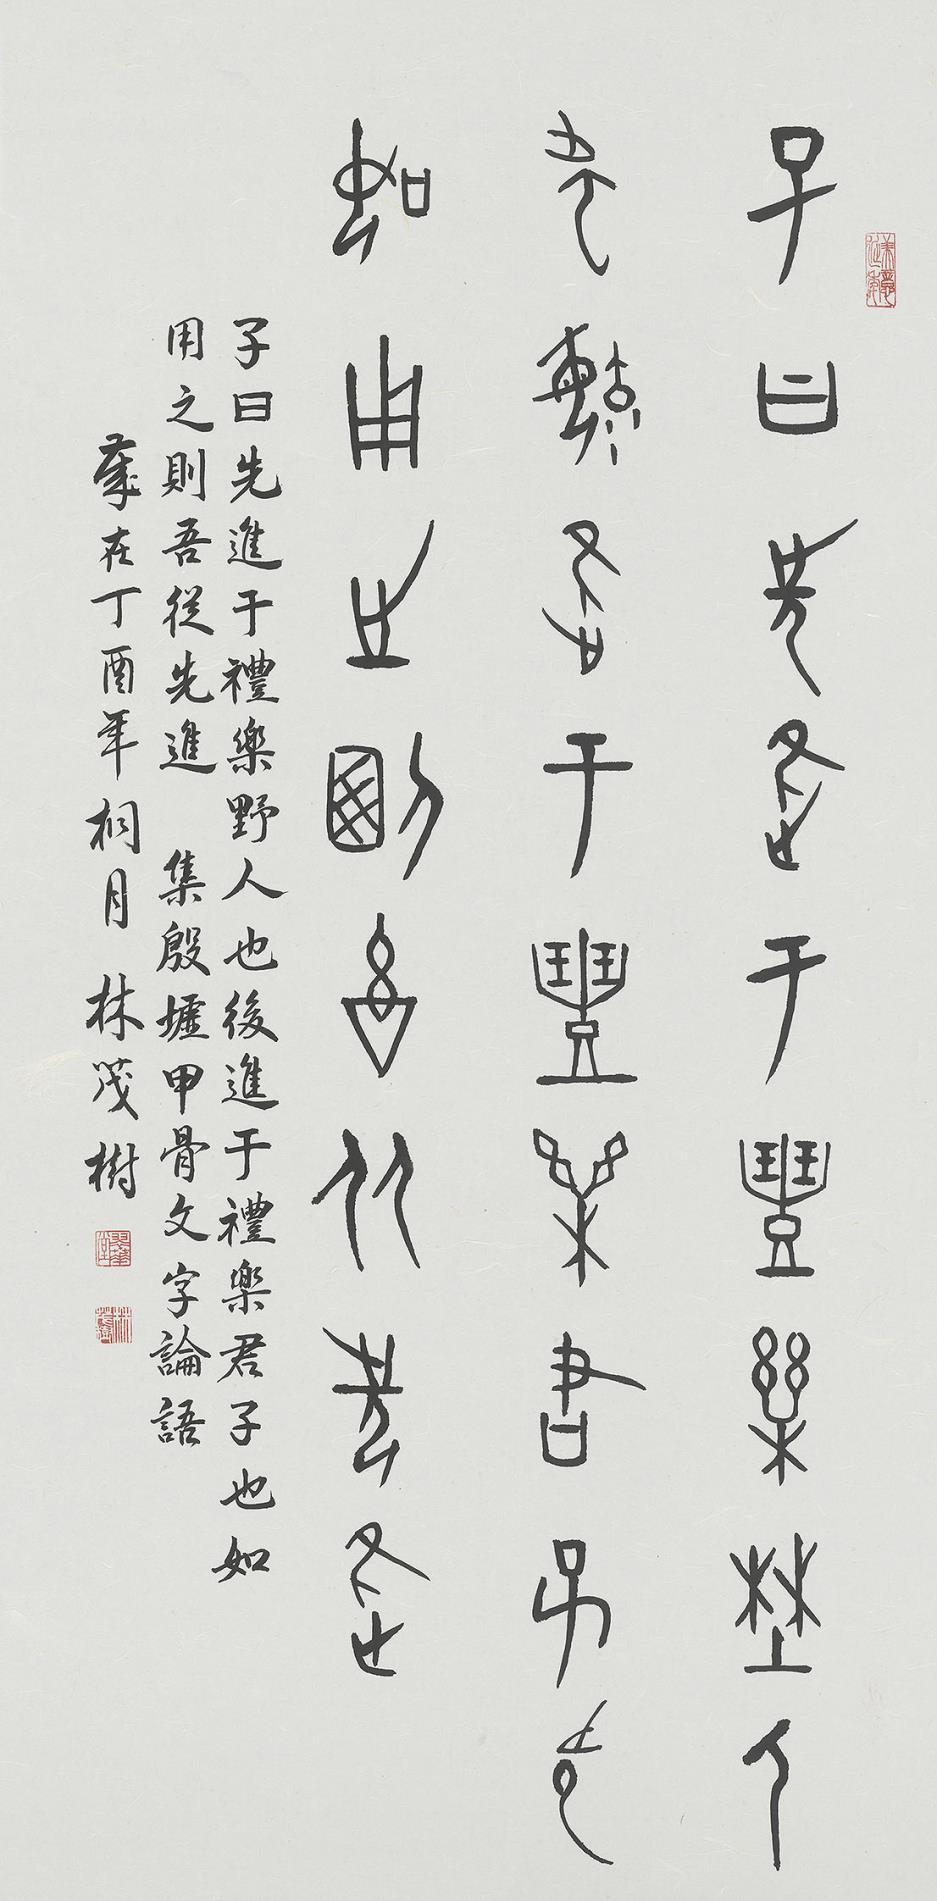 子曰先進于禮樂野人
也後進于禮樂君子也
如用之則吾從先進
子曰先進于禮樂野人也後進于禮樂君子也如
用之則吾從先進 集殷墟甲骨文字論語
歲在丁酉年桐月 林茂樹